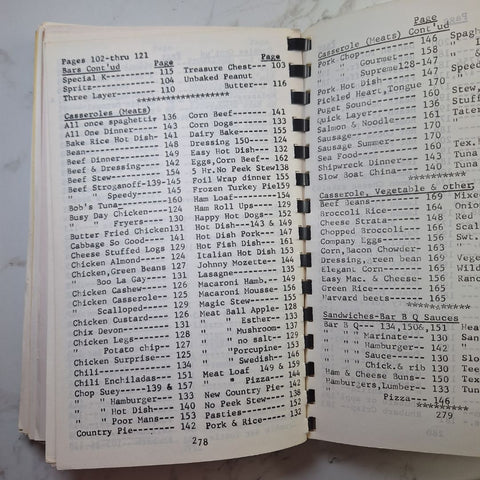 Pages 102-thru 121
Bars Cont'ud Page
Special K------- 115
Spritz---------- 104
Three Layer----- 110
Page
Treasure Chest--- 103
Unbaked Peanut
Butter---- 116
********************
Casseroles (Meats)
All once spaghetti, 136
All One Dinner----- 143
Bake Rice Hot Dish- 141
Bean--------------- 148
Beef Dinner-------- 149
Beef & Dressing---- 142
Beef Stew---------- 154
Beef Stroganoff-139-145
" " Speedy---- 145
Bob's Tuna--------- 160
Busy Day Chicken--- 124
" " Fryers---- 130
Butter Fried Chicken131
Cabbage So Good---- 141
Cheese Stuffed Logs 129
Chicken Almond----- 124
Chicken,Green Beans 127
" Boo La Gay- 131
Chicken Cashew----- 126
Chicken Casserole-- 125
" Scalloped-- 129
Chicken Custard---- 126
Chix Devon--------- 131
Chicken Legs------- 128
" Potato chip-- 127
Chicken Surprise--- 125
Chili-------------- 134
Chili Enchiladas--- 151
Chop Suey----139 & 157
" " Hamburger-- 133
" " Hot Dish--- 140
" " Poor Mans-- 153
Country Pie-------- 142
Corn Beef------- 141
Corn Dogs------- 133
Dairy Bake------ 155
Dressing 150---- 124
Easy Hot Dish--- 132
Eggs,Corn Beef-- 162
5 Hr.No Peek Stew138
Foil Wrap dinner 155
Frozen Turkey Pie159
Ham Loaf-------- 154
Ham Roll Ups---- 129
Happy Hot Dogs-- 152
Hot Dish---143 & 149
Hot Pork Dish--- 147
Hot Fish Dish--- 161
Italian Hot Dish 153
Johnny Mozette-- 144
Lasagne--------- 131
Macaroni Hamb.-- 148
Macaroni Mousse- 156
Magic Stew------ 155
Meat Ball Apple- 128
" " Esther-- 133
" " Mushroom- 137
" " no salt-- 129
" " Porcupine 153
" " Swedish-- 146
Meat Loaf 149 & 159
" " Pizza--- 144
New Country Pie- 142
No Peek Stew---- 138
Pasties--------- 152
Pork & Rice----- 132
278
Page
Casserole (Meats) Cont'ud
Pork Chop-------- 146
" " Gourmet--- 158
" " Supreme128-147
Pork Hot Dish----- 141
Pickled Heart,Tongue 170
Pepc Sound-------- 160
Quick Layer------- 136
Salmon & Noodle--- 161
Sausage----------- 147
Sausage Summer---- 170
Sea Food---------- 160
Shipwreck Dinner-- 143
Slow Boat China--- 140
Casserole, Vegetable & other
Beef Beans-------- 169
Broccoli Rice----- 164
Cheese Strata----- 148
Chopped Broccoli-- 166
Company Eggs------ 156
Corn, Bacon Chowder 163
Dressing,green bean
Elegant Corn------ 165
Easy Mac. & Cheese- 156
Green Rice-------- 165
Harvard beets----- 165
Sandwiches-Bar B Q Sauces
Bar B Q-- 134,1506,151
" " " Marinate--- 130
" " " Hamburger-- 142
" " " Sauce------ 130
" " " Chick.& rib 130
Ham & Cheese Buns- 150
Hamburgers,Lumber- 133
Pizza---- 146
*********
279
Page
Spagh
Stew,
Stuff
Tater
Tex.
Tuna
Tuna
Mixe
Onio
Red
Scal
Swt.
Vege
Wild
Ran
Hea
Slo
Tun